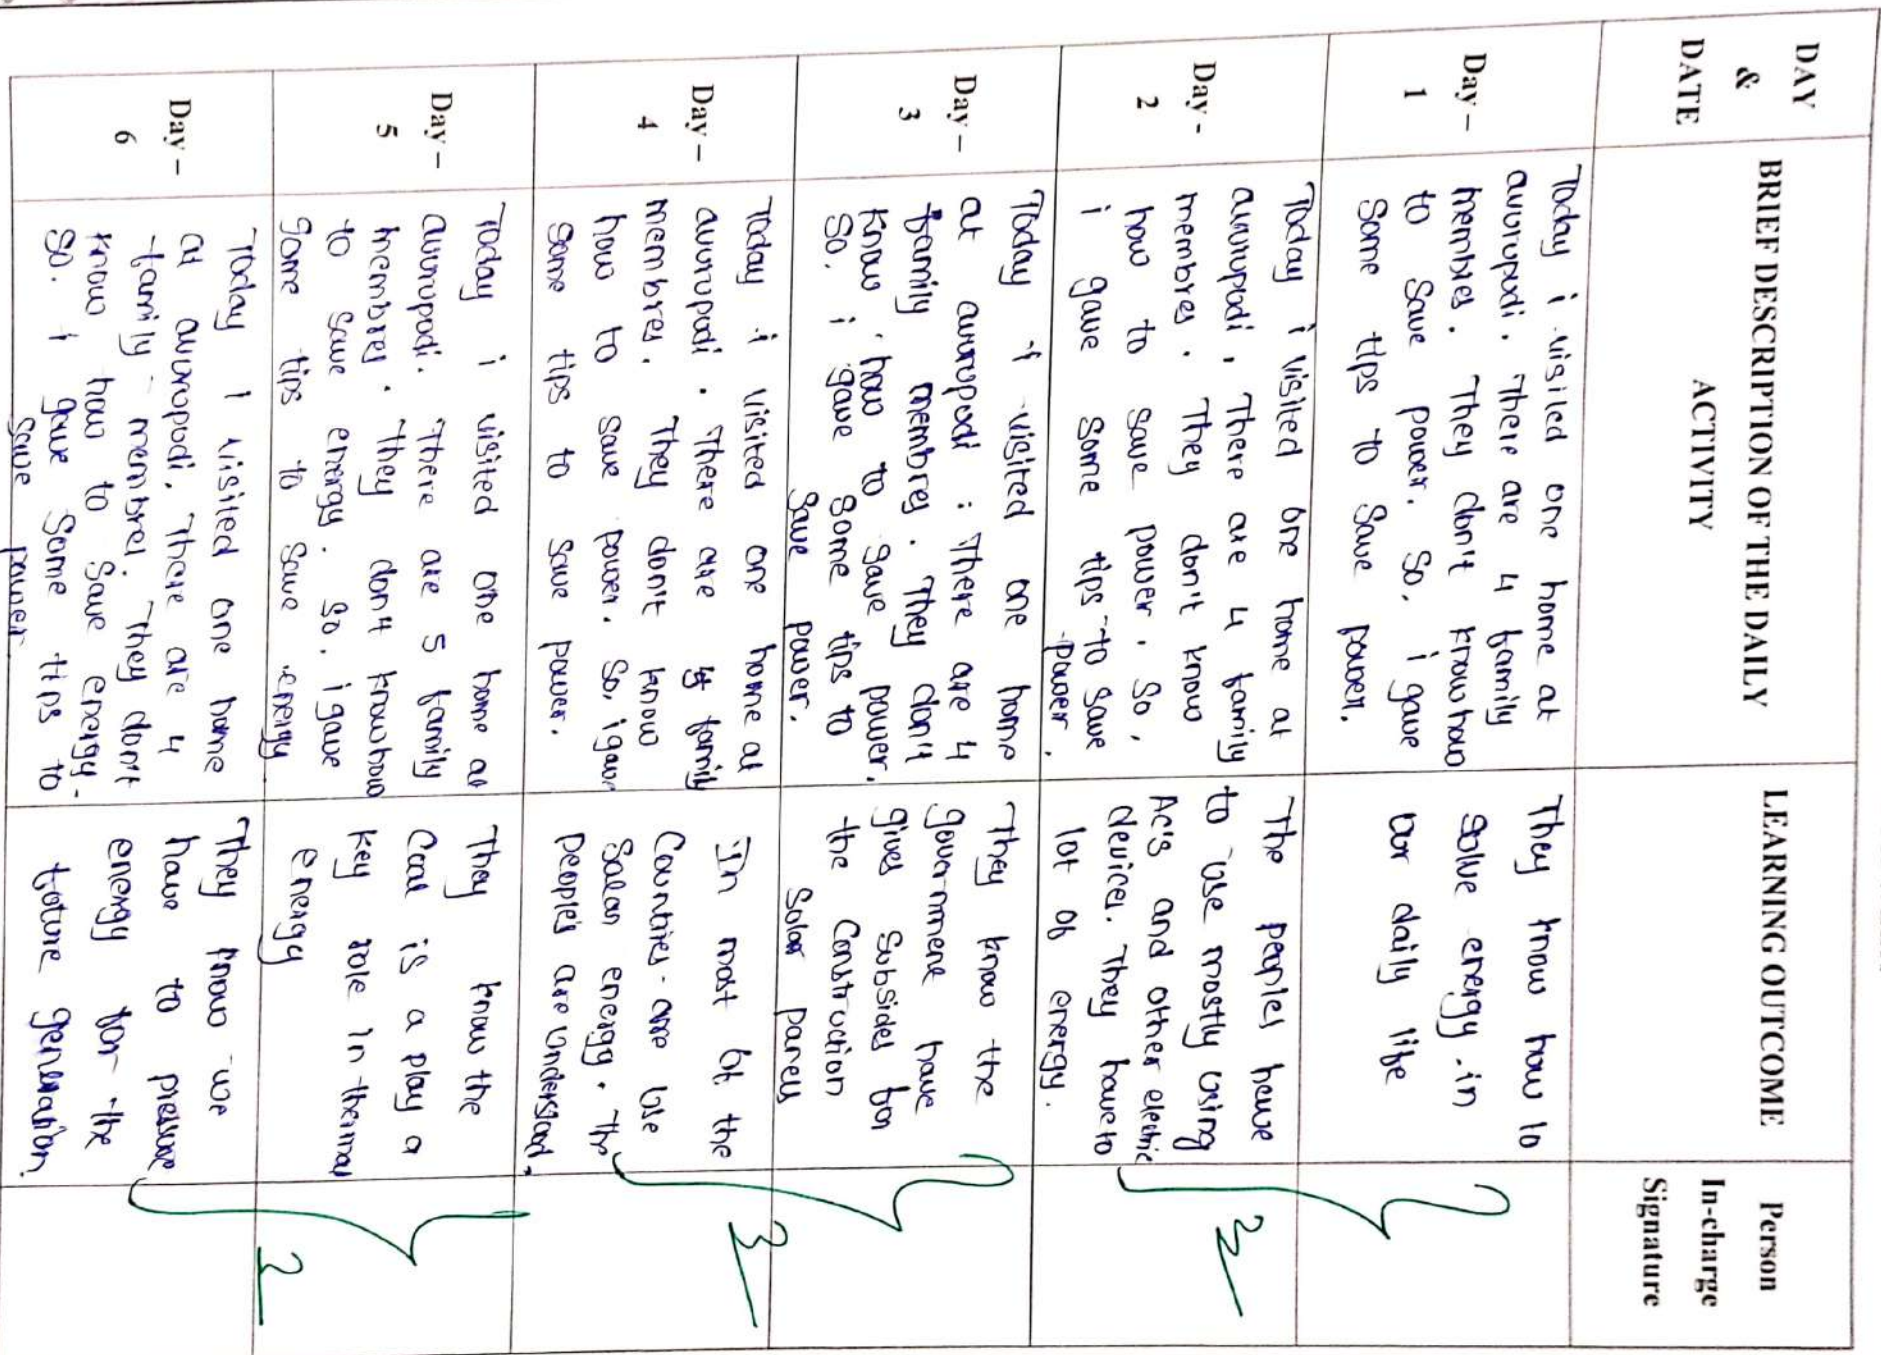 DAY
&
DATE
BRIEF DESCRIPTION OF THE DAILY
ACTIVITY
LEARNING OUTCOME
Person
In-charge
Signature
Day –
1
Today i visited one home at
avurupodi. There are 4 family
membres. They don't know how
to save power. So, i gave
some tips to save power.
They know how to
solve energy in
our daily life
Day -
2
Today i visited one home at
avurupodi. There are 4 family
membres. They don't know
how to save power. So,
i gave some tips to save
power.
The peoples have
to use mostly using
AC's and other electric
devices. They have to
lot of energy.
Day –
3
Today i visited one home
at avurupodi. There are 4
family membres. They don't
know how to save power.
So, i gave some tips to
save power.
They know the
government have
gives subsides for
the construction
solar panels
Day –
4
Today i visited one home at
avurupodi. There are 4 family
membres. They don't know
how to save power. So, i gave
some tips to save power.
In most of the
Countries are use
Salan energy. The
people's are understand.
Day –
5
Today i visited one home at
avurupodi. There are 5 family
membres. They don't know how
to save energy. So, i gave
some tips to save energy
They know the
Coal is a play a
key role in thermal
energy
Day –
6
Today i visited one home
at avurupodi. There are 4
family membres. They don't
know how to save energy.
So. i gave some tips to
save power
They know we
have to pressure
energy for the
future generation.